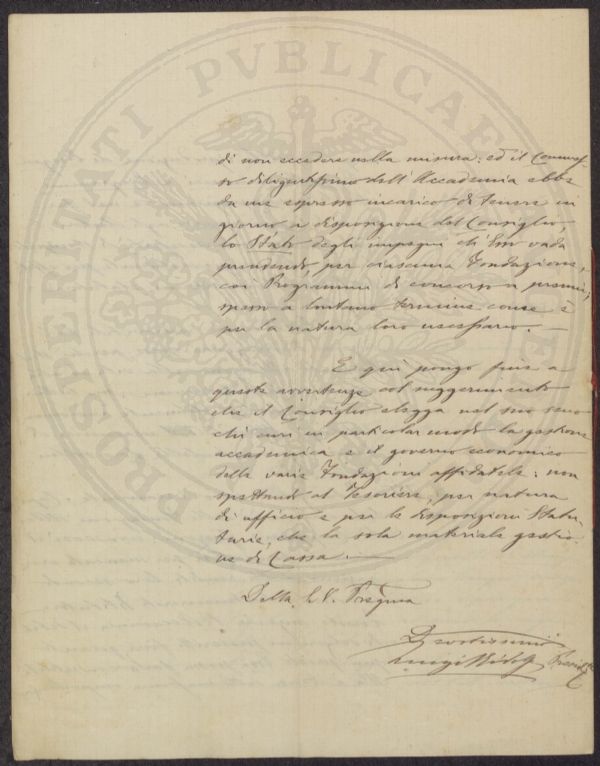 PROSPERITATI PVBLICAE
di non eccedere nella misura: ed il Commes-
so diligentissimo dell'Accademia ebbe
da me espresso incarico di tenere in
giorno a disposizione del Consiglio,
lo Stato degli impegni ch'Ivi vada
prendendo, per ciascuna Fondazione,
coi Programmi di concorso a premi,
spesso a lontano termine come è
per la natura loro necessario. —
E qui pongo fine a
queste avvertenze col suggerimento
che il Consiglio elegga nel suo seno
chi curi in particolar modo la gestione
accademica e il governo economico
delle varie Fondazioni affidatele: non
spettando al Tesoriere, per natura
di ufficio e per le disposizioni Statu-
tarie, che la sola materiale gestio-
ne di Cassa. —
Della S. V. Pregma
Devotissimo
Luigi